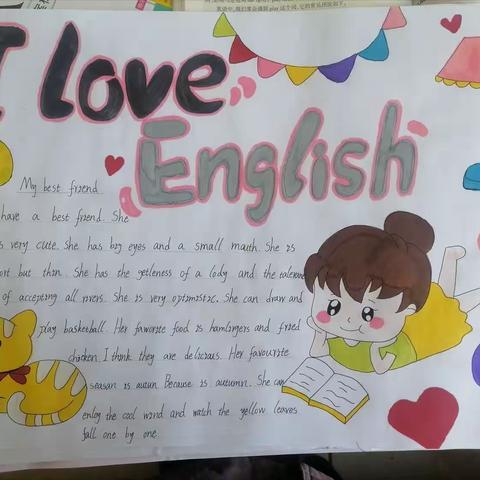 I love
English
My best friend
have a best friend. She
is very cute. She has big eyes and a small mouth. She is
ort but thin. She has the getleness of a lady and the talerane
of accepting all rivers. She is very optimistic. She can draw and
play basketball. Her favorite food is hamlurgers and fried
chicken. I think they are delicious. Her favourite
seasan is autun. Because is autumn. She can
enjoy the cool wind and watch the yellow leaves
fall one by one.